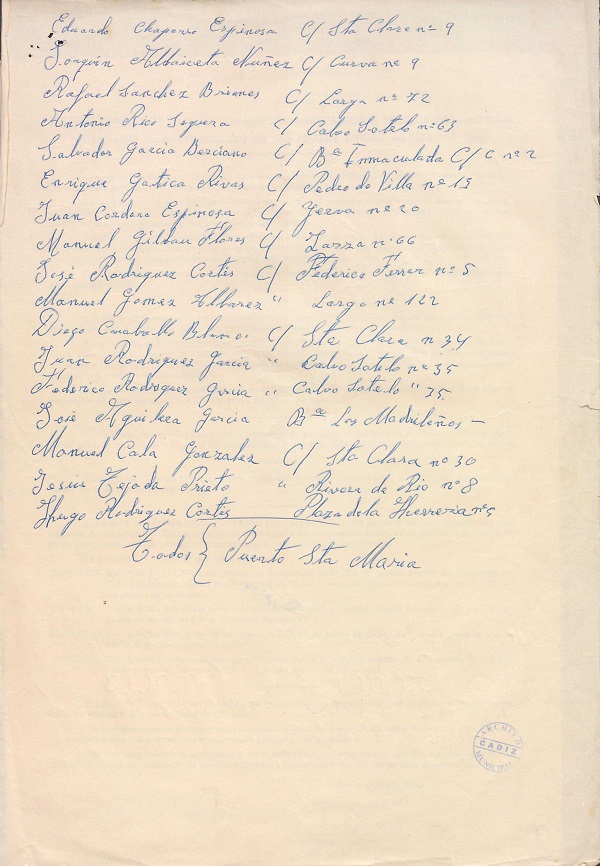 Eduardo Chaparro Espinosa C/ Sta Clara nº 9
Joaquin Albaiceta Nuñez C/ Curva nº 9
Rafael Sanchez Briones C/ Larga nº 72
Antonio Rico Segura C/ Calvo Sotelo nº 63
Salvador Garcia Berciano C/ Bª Inmaculada C/ C nº 2
Enrique Gatica Rivas C/ Pedro de Villa nº 15
Juan Cordero Espinosa C/ Yerva nº 20
Manuel Gilbau Flores C/ Zarza nº 66
José Rodriguez Cortés C/ Federico Ferrer nº 5
Manuel Gomez Albarez " Larga nº 122
Diego Caraballo Blanco C/ Sta Clara n 34
Juan Rodriguez Garcia " Calvo Sotelo nº 35
Federico Rodriguez Garcia " Calvo Sotelo " 35
José Aguilera Garcia Bª Los Madrileños —
Manuel Cala Gonzalez C/ Sta Clara nº 30
Jesus Tejada Prieto " Rivera de Rio nº 8
Hugo Rodriguez Cortés Plaza de la Herreria nº 5
Todos { Puerto Sta Maria
ARCHIVO
CADIZ
MUNICIPAL